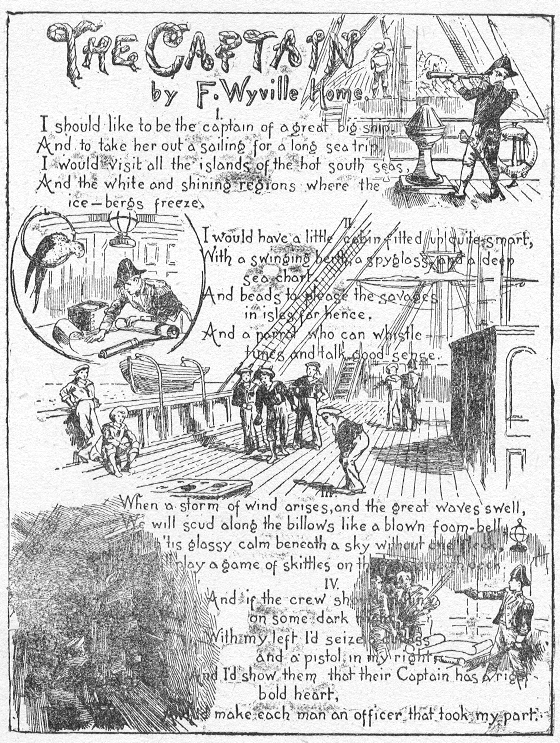 THE CAPTAIN
by F. Wyville Home.
I.
I should like to be the captain of a great big ship,
And to take her out a sailing for a long sea trip,
I would visit all the islands of the hot south seas,
And the white and shining regions where the
ice-bergs freeze.
II.
I would have a little cabin fitted up quite smart,
With a swinging berth, a spyglass, and a deep
sea chart,
And beads to please the savages
in isles far hence,
And a parrot who can whistle
tunes and talk good sense.
III.
When a storm of wind arises, and the great waves swell,
will scud along the billows like a blown foam-bell,
'tis glassy calm beneath a sky without one
play a game of skittles on the
IV.
And if the crew should
on some dark
With my left I'd seize a cutlass
and a pistol in my right,
And I'd show them that their Captain has a right
bold heart,
make each man an officer that took my part.